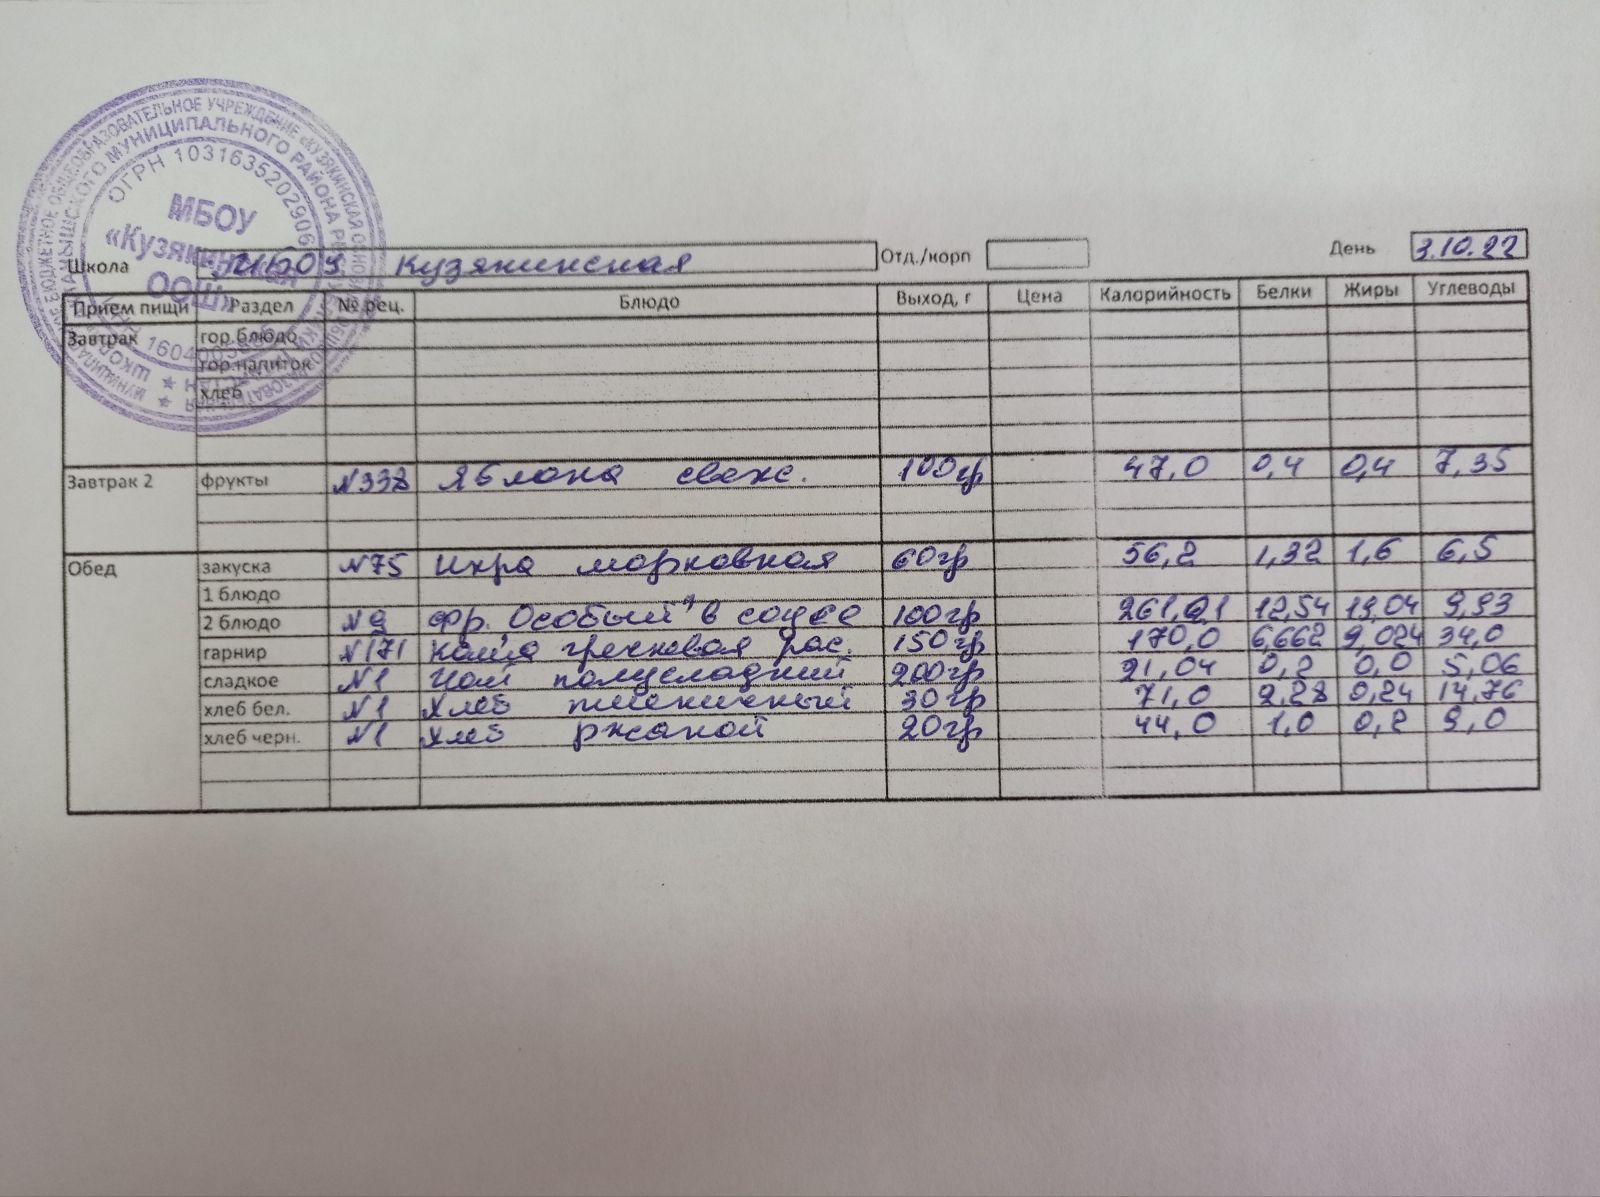 МУНИЦИПАЛЬНОЕ БЮДЖЕТНОЕ ОБЩЕОБРАЗОВАТЕЛЬНОЕ УЧРЕЖДЕНИЕ «КУЗЯКИНСКАЯ
МУНИЦИПАЛЬНОГО РАЙОНА
ОГРН 1031635202906
МБОУ
«Кузякинская
ООШ»
Школа МБОУ Кузякинская Отд./корп День 3.10.22
Прием пищи Раздел № рец. Блюдо Выход, г Цена Калорийность Белки Жиры Углеводы
Завтрак гор.блюдо
гор.напиток
хлеб
Завтрак 2 фрукты №338 Яблока свеж. 100гр 47,0 0,4 0,4 7,35
Обед закуска №75 Икра морковная 60гр 56,2 1,32 1,6 6,5
1 блюдо
2 блюдо №9 фр. Особый" в соусе 100гр 261,21 12,54 19,04 9,93
гарнир №171 каша гречневая рас. 150гр 170,0 6,662 9,024 34,0
сладкое №1 Чай полусладкий 200гр 21,04 0,2 0,0 5,06
хлеб бел. №1 хлеб пшеничный 30гр 71,0 2,28 0,24 14,76
хлеб черн. №1 хлеб ржаной 20гр 44,0 1,0 0,2 9,0